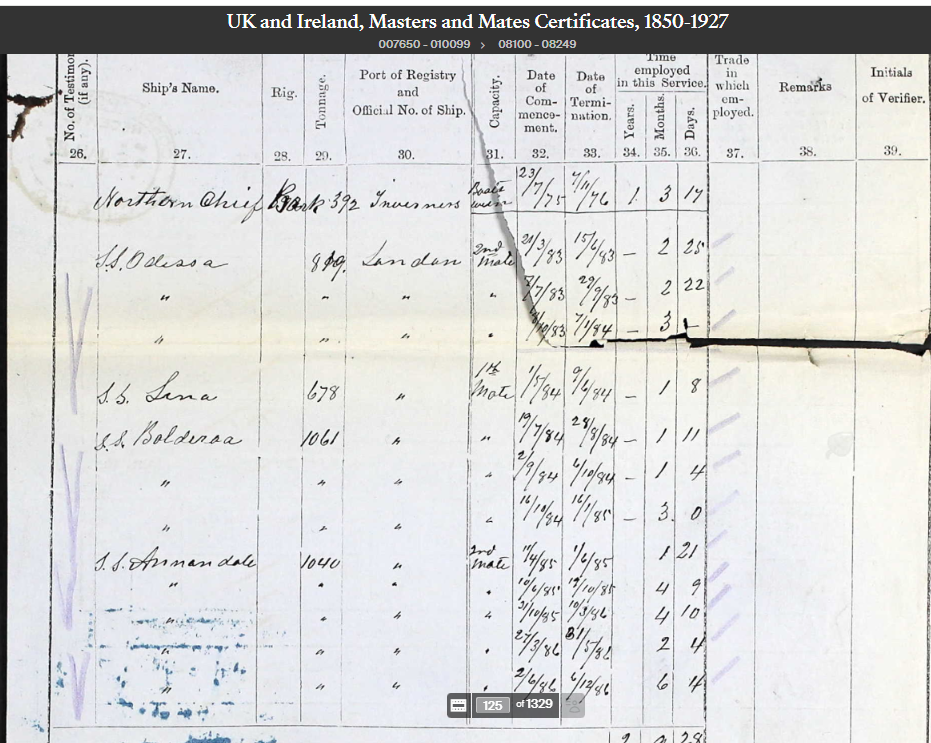 UK and Ireland, Masters and Mates Certificates, 1850-1927
007650 - 010099 > 08100 - 08249
No. of Testimon (if any). Ship's Name. Rig. Tonnage. Port of Registry and Official No. of Ship. Capacity. Date of Commencement. Date of Termination. Time employed in this Service. Years. Months. Days. Trade in which employed. Remarks Initials of Verifier.
26. 27. 28. 29. 30. 31. 32. 33. 34. 35. 36. 37. 38. 39.
Northern Chief Bark 392 Inverness Boatswain 23/7/75 7/11/76 1 3 17
S.S. Odessa 819 London 2nd Mate 21/3/83 15/6/83 – 2 25
" " " " 7/7/83 29/9/83 – 2 22
" " " " /10/83 7/1/84 – 3
S.S. Lena 678 " 1st Mate 1/5/84 9/6/84 – 1 8
S.S. Bolderaa 1061 " " 19/7/84 28/8/84 – 1 11
" " " 2/9/84 6/10/84 – 1 4
" " " " 16/10/84 16/1/85 – 3. 0
S.S. Annandale 1040 " 2nd Mate 11/4/85 1/6/85 1 21
" " " " 10/6/85 19/10/85 4 9
" " " " 31/10/85 10/3/86 4 10
" " " " 27/3/86 31/5/86 2 4
" " " " 2/6/86 6/12/86 6 4
125 of 1329
28